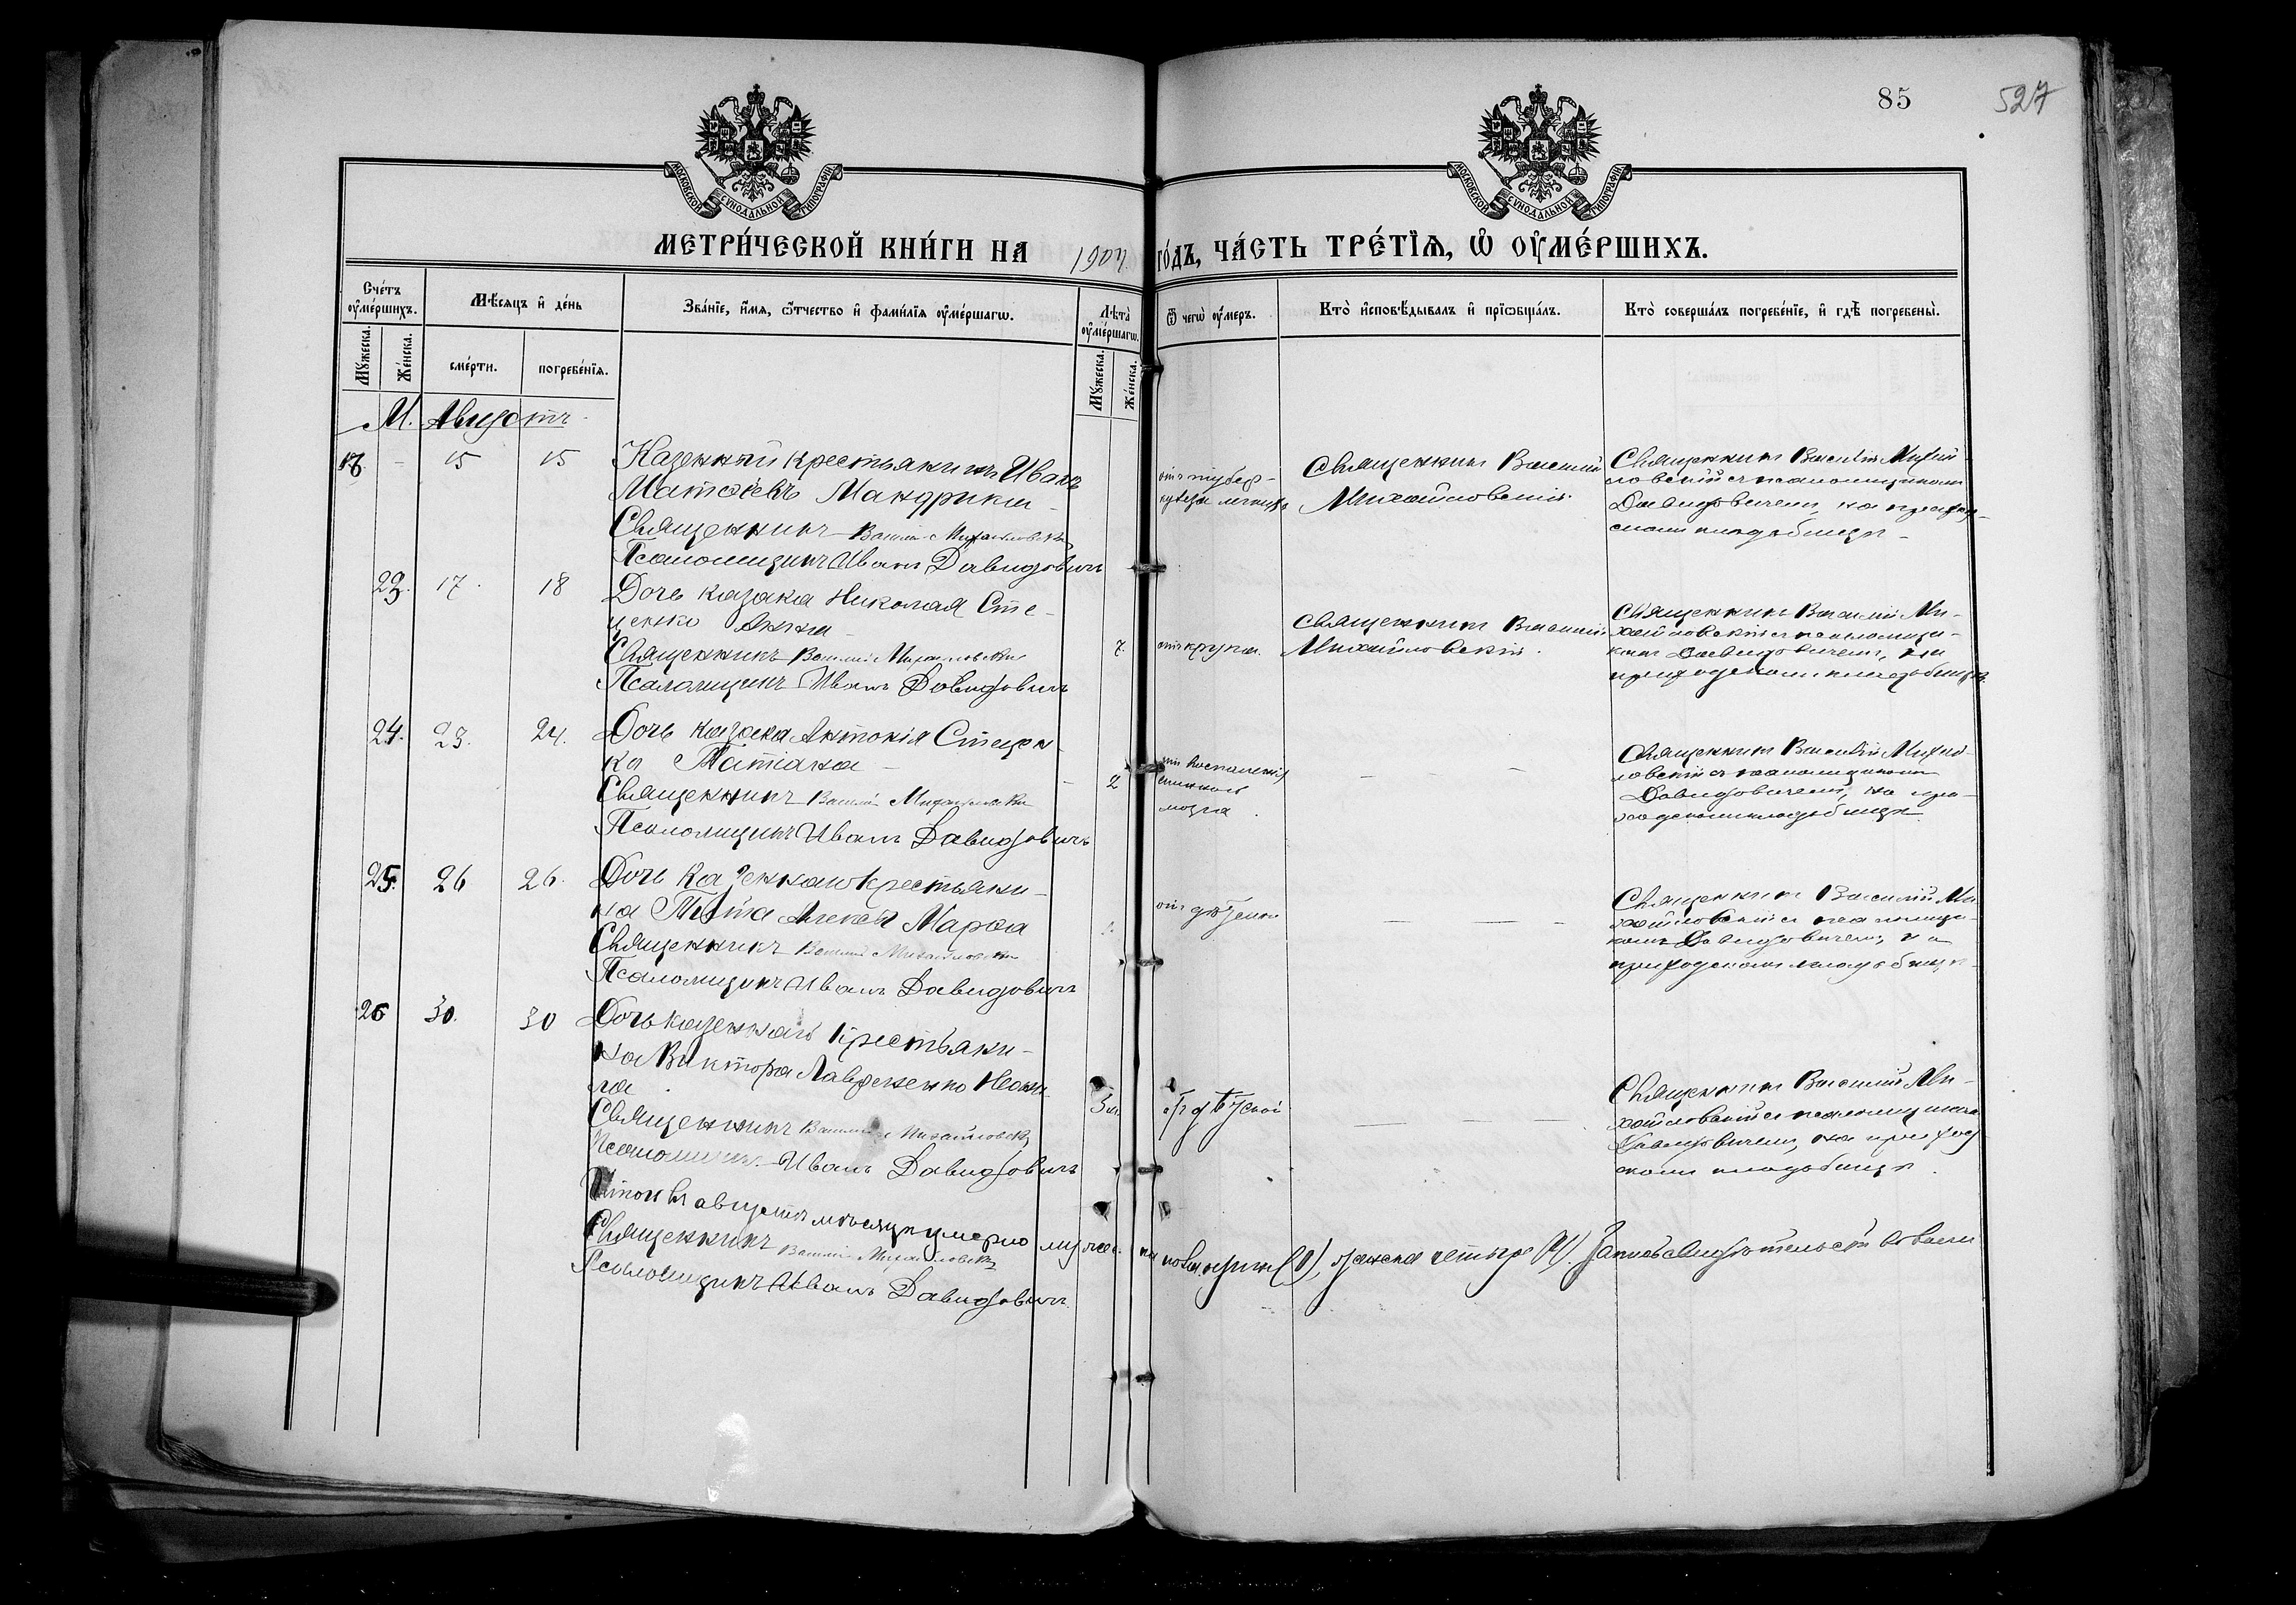 85
527
МОСКОВСКОЙ СУНОДАЛЬНОЙ ТИПОГРАФІИ
МОСКОВСКОЙ СУНОДАЛЬНОЙ ТИПОГРАФІИ
МЕТРИ́ЧЕСКОЙ КНИ́ГИ НА 190 ГО́ДЪ, ЧА́СТЬ ТРЕ́ТІѦ, Ѽ ОУ҆МЕ́РШИХЪ.
Сче́тъ оу҆ме́ршихъ.
Мѣ́сяцъ и҆ де́нь
Зва́нїе, и҆́мя, ѻ҆́тчество и҆ фами́лїя оу҆ме́ршагѡ.
Лѣ́та оу҆ме́ршагѡ.
Ѿ чегѡ̀ оу҆́меръ.
Кто̀ и҆сповѣ́дывалъ и҆ прїѡбща́лъ.
Кто̀ соверша́лъ погребе́нїе, и҆ гдѣ̀ погребены̀.
Мꙋ́жеска.
Же́нска.
сме́рти.
погребе́нїя.
Мꙋ́жеска.
Же́нска.
М. Августъ
- 15 15 Казенный крестьянинъ Иванъ
Матѳіевъ Мандрика
Священникъ Василій Михайловскій
Псаломщикъ Иванъ Давидовичъ
отъ тубер-
кулеза легкихъ
Священникъ Василій
Михайловскій
Священникъ Василій Михай-
ловскій съ псаломщикомъ
Давидовичемъ, на приход-
скомъ кладбищѣ
23. 17. 18 Дочь казака Николая Сте-
ценко Анна
Священникъ Василій Михайловскій
Псаломщикъ Иванъ Давидовичъ
7. отъ крупа.
Священникъ Василій
Михайловскій.
Священникъ Василій Ми-
хайловскій съ псаломщи-
комъ Давидовичемъ, на
приходскомъ кладбищѣ.
24. 23. 24. Дочь казака Антонія Стецен-
ка Татіана -
Священникъ Василій Михайловскій
Псаломщикъ Иванъ Давидовичъ
2 отъ воспаленія
мозга
- - -
Священникъ Василій Михай-
ловскій съ псаломщикомъ
Давидовичемъ, на при-
ходскомъ кладбищѣ
25. 26 26. Дочь казеннаго крестьяни-
на Тита
Священникъ Василій Михайловскій
Псаломщикъ Иванъ Давидовичъ
отъ дѣтской
- - -
Священникъ Василій Ми-
хайловскій съ псаломщи-
комъ Давидовичемъ, на
приходскомъ кладбищѣ
26 30. 30 Дочь казеннаго крестьяни-
на Виктора Лавриненко Неони-
ла
Священникъ Василій Михайловскій
Псаломщикъ Иванъ Давидовичъ
отъ дѣтской
- - -
Священникъ Василій Ми-
хайловскій съ псаломщикомъ
Давидовичемъ, на приход
скомъ кладбищѣ.
Итого въ августѣ мѣсяцѣ умерло мужес-каго пола одинъ (1), женска четыре (4). Запись свидѣтельствовали
Священникъ Василій Михайловскій
Псаломщикъ Иванъ Давидовичъ